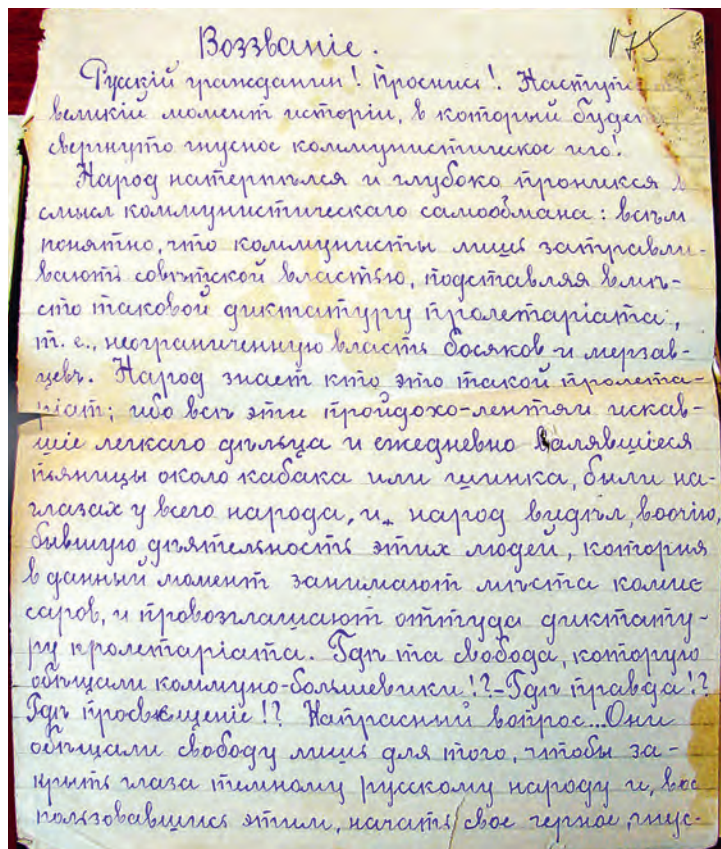 Воззваніе.
175
Русскій гражданин! Проснись! Наступи
великій момент исторіи, в который будет
свергнуто гнусное коммунистическое иго!
Народ натерпѣлся и глубоко проникся в
смысл коммунистическаго самообмана: всѣм
понятно, что коммунисты лишь затуравли-
вают совѣтской властью, подставляя вмѣ-
сто таковой диктатуру пролетаріата,
т. е., неограниченную власть босяков и мерзав-
цевъ. Народ знает кто это такой пролета-
ріат; ибо всѣ эти пройдохо-лентяи искав-
шіе легкаго дѣльца и ежедневно валявшіеся
пьяницы около кабака или шинка, были на-
глазах у всего народа, и народ видѣл, воочію,
бывшую дѣятельность этих людей, которыя
в данный момент занимают мѣста комис
саров, и провозглашают оттуда диктату-
ру пролетаріата. Гдѣ та свобода, которую
обѣщали коммуно-большевики!?-Гдѣ правда!?
Гдѣ просвѣщеніе!? Напрасный вопрос...Они
обѣщали свободу лишь для того, чтобы за-
крыть глаза темному русскому народу и, вос
пользовавшись этим, начать свое черное, гнус-